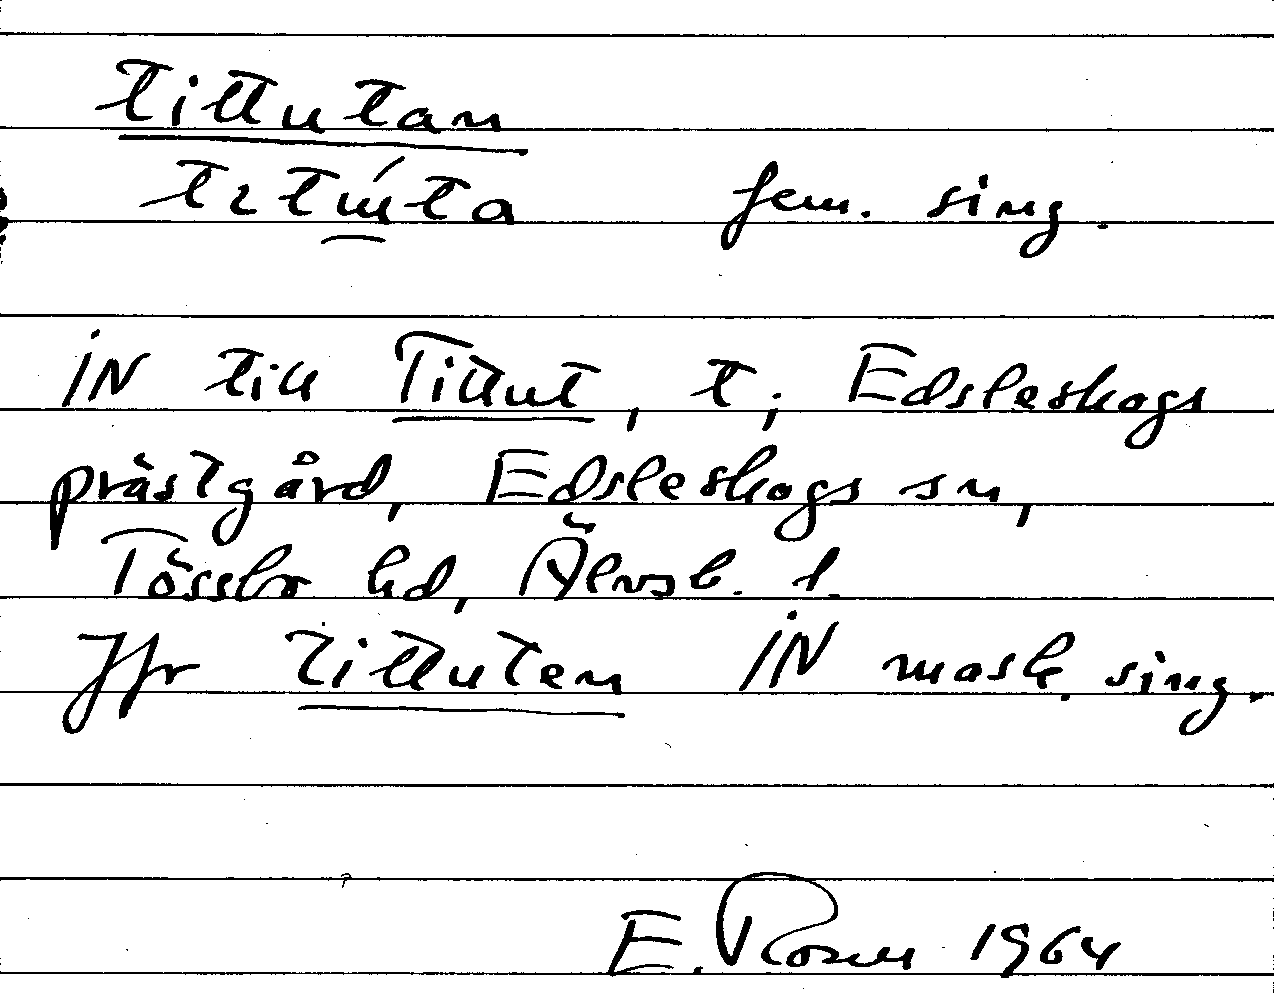 tittutan
fem. sing.
IN till Tittut, t, Edsleskogs
prästgård, Edsleskogs sn,
Tössbo hd, Älvsb. l.
Jfr tittuten IN mask. sing.
E. Rosen 1964